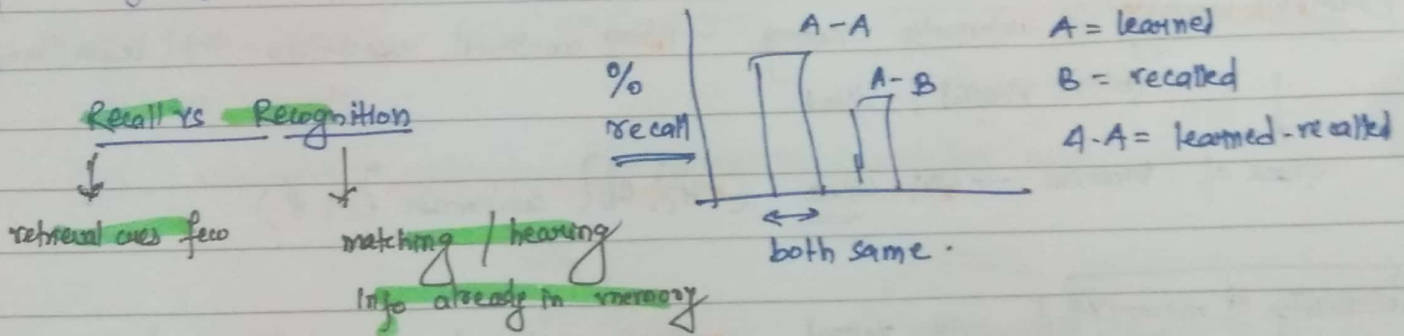 Recall vs Recognition
retrieval cues few
matching / hearing
Info already in memory
%
recall
A-A
A-B
both same.
A = learned
B = recalled
A-A = learned-recalled